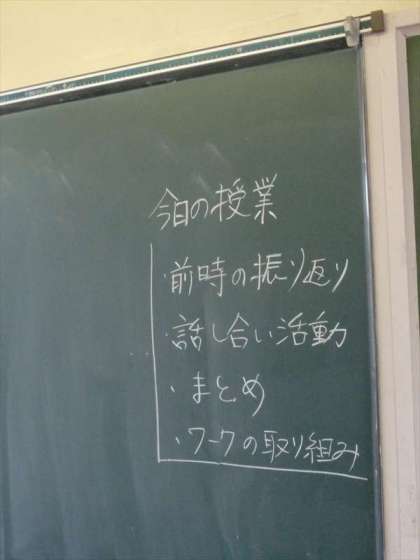 今日の授業
・前時の振り返り
・話し合い活動
・まとめ
・ワークの取り組み